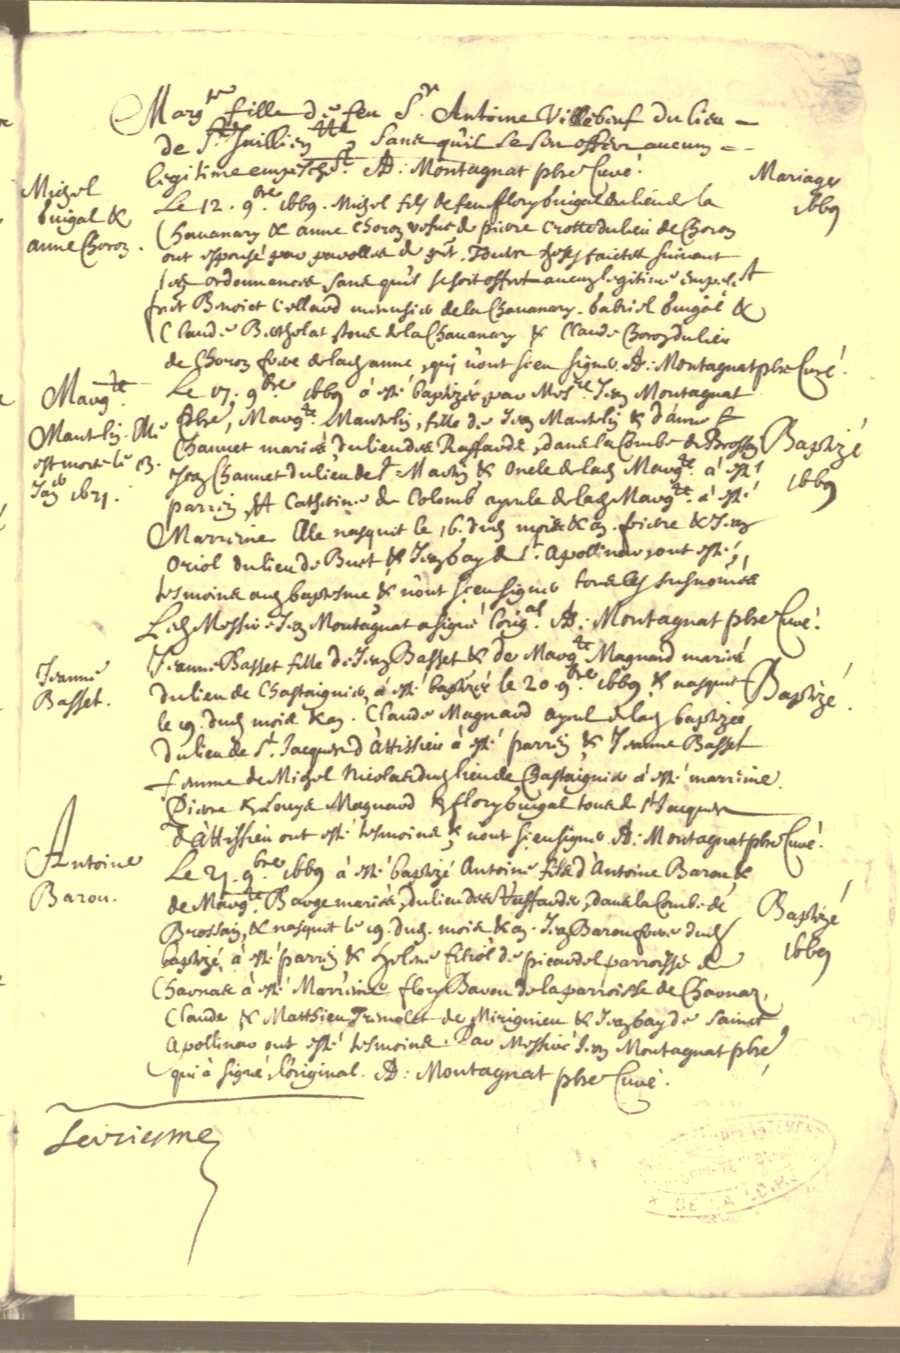 Marg.te fille de feu S.r Antoine Villebeuf du lieu
de St Juillien, sans qu'il se soit offert aucun
legitime empesche.t A: Montagnat pbre Curé.
Mariage
1669
Michel
buigal &
anne Choron.
Le 12. 9.bre 1669. Michel fils de feu flory buigal du lieu de la
Chavanary & anne Choron vefve de pierre Crotte du lieu de Choron
ont espousé par parolles de pnt. Toutes choses faictes suivant
les ordonnances sans qu'il se soit offert aucung legitime empesc.t
prnt Benoict Cellard menusier de la Chavanary. Gabriel buigal &
Claude Berthelat tous de la Chavanary & Claude Choron du lieu
de Choron frere de lad. anne, qui n'ont sceu signer A: Montagnat pbre Curé.
Marg.te
Mantelin. Elle
est morte le 13.
Jan 1671.
Le 17. 9.bre 1669 à esté baptizée par Mes.re Jean Montagnat
Pbre, Marg.te Mantelin, fille de Jean Mantelin & d'anne
Chaumet mariés du lieu des Raffards, dans la Combe de Brossin
Baptizé
1669
Jean Chaumet du lieu de St Martin & Oncle de lad. Marg.te à esté
parrin, & Catherine de Colomb ayeule de lad. Marg.te à esté
Marrine. Elle nasquit le 16. dud. mois & an. pierre & Jean
Oriol du lieu de Buet & Jean bayd de St. Apollinar, ont esté,
tesmoins aud. baptesme & n'ont sceu signer tous les susnomés
Led. Messire Jean Montagnat a signé l'orig.al A: Montagnat pbre Curé.
Jeanne
Basset.
Jeanne Basset fille de Jean Basset & de Marg.te Magnard mariés
du lieu de Chastaignier, à esté baptizée le 20. 9.bre 1669 & nasquit
Baptizé.
le 19. dud. mois & an. Claude Magnard ayeul de lad. baptizée,
du lieu de St. Jacques d'Attissieu à esté parrin & Jeanne Basset
femme de Michel Nicolas dud. lieu de Chastaignier à esté marrine.
Pierre & Louys Magnard & flory buigal tous de St Jacques
d'Attissieu ont esté tesmoins & n'ont sceu signer A: Montagnat pbre Curé.
Antoine
Baron.
Le 21. 9.bre 1669 à esté baptizé Antoine fils d'Antoine Baron &
de Marg.te Barge mariés, du lieu des Raffards, dans la Combe de
Baptizé
1669
Brossin, & nasquit le 19. dud. mois & an. Jean Baron frere dud.
baptizé, à esté parrin & Helene filiol de picardel parroisse de
Charnas à esté Marrine flory Baron de la parroisse de Charnas,
Claude & Matthieu Trimolet de Mirignieu & Jean bayd de Sainct
Apollinar ont esté tesmoins. Par Messire Jean Montagnat pbre,
qui à signé, l'original. A: Montagnat pbre Curé.